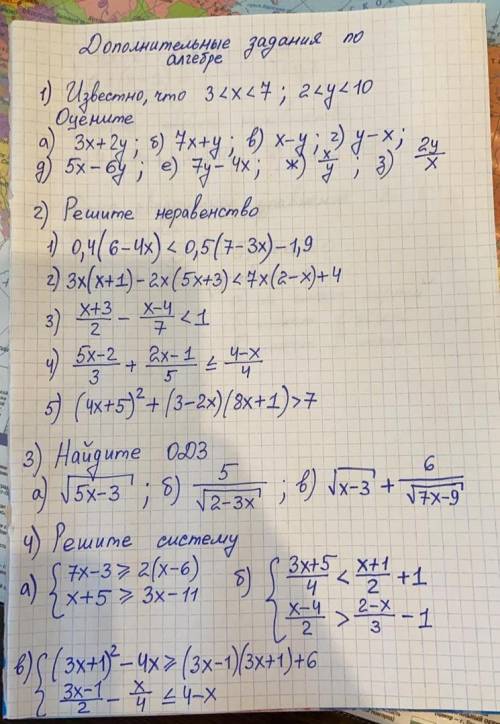 Дополнительные задания по
алгебре
1) Известно, что 3<x<7 ; 2<y<10
Оцените
а) 3x+2y ; б) 7x+y ; в) x-y ; г) y-x ;
д) 5x-6y ; е) 7y-4x ; ж) x/y ; з) 2y/x
2) Решите неравенство
1) 0,4(6-4x) < 0,5(7-3x)-1,9
2) 3x(x+1)-2x(5x+3)<7x(2-x)+4
3) (x+3)/2 - (x-4)/7 <1
4) (5x-2)/3 + (2x-1)/5 ≤ (4-x)/4
5) (4x+5)²+(3-2x)(8x+1)>7
3) Найдите ОДЗ
а) √(5x-3) ; б) 5/√(2-3x) ; в) √(x-3) + 6/√(7x-9)
4) Решите систему
а) { 7x-3 ≥ 2(x-6)
x+5 ≥ 3x-11
б) { (3x+5)/4 < (x+1)/2 +1
(x-4)/2 > (2-x)/3 -1
в) { (3x+1)²-4x ≥ (3x-1)(3x+1)+6
(3x-1)/2 - x/4 ≤ 4-x